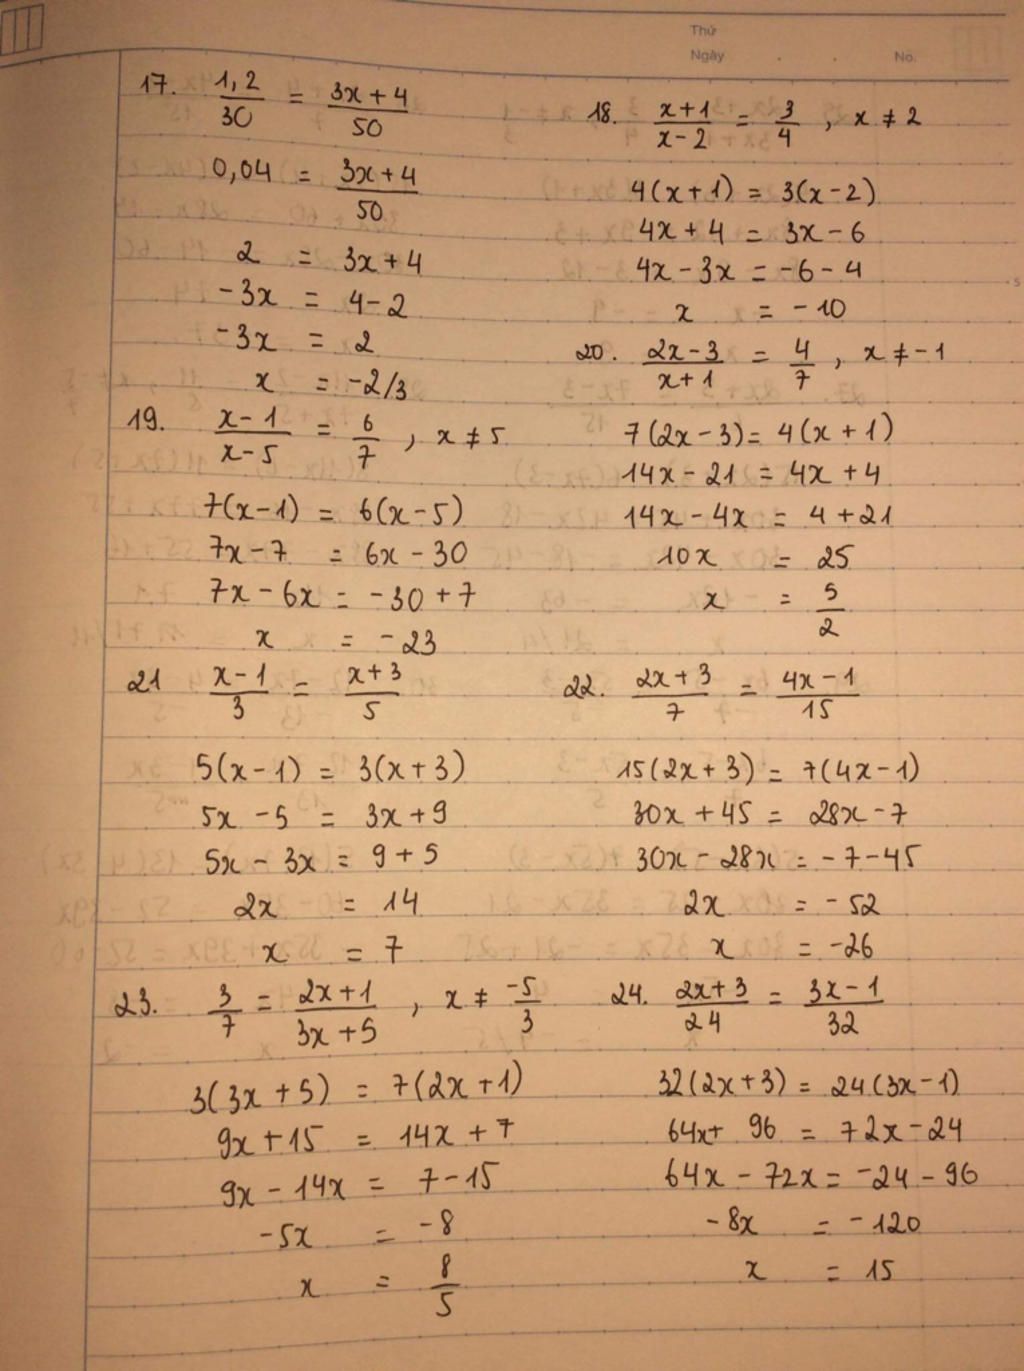 Thứ
Ngày . . No.
17. 1,2/30 = (3x+4)/50
0,04 = (3x+4)/50
2 = 3x+4
-3x = 4-2
-3x = 2
x = -2/3
18. (x+1)/(x-2) = 3/4 , x ≠ 2
4(x+1) = 3(x-2)
4x+4 = 3x-6
4x-3x = -6-4
x = -10
19. (x-1)/(x-5) = 6/7 , x ≠ 5
7(x-1) = 6(x-5)
7x-7 = 6x-30
7x-6x = -30+7
x = -23
20. (2x-3)/(x+1) = 4/7 , x ≠ -1
7(2x-3) = 4(x+1)
14x-21 = 4x+4
14x-4x = 4+21
10x = 25
x = 5/2
21 (x-1)/3 = (x+3)/5
5(x-1) = 3(x+3)
5x-5 = 3x+9
5x-3x = 9+5
2x = 14
x = 7
22. (2x+3)/7 = (4x-1)/15
15(2x+3) = 7(4x-1)
30x+45 = 28x-7
30x-28x = -7-45
2x = -52
x = -26
23. 3/7 = (2x+1)/(3x+5) , x ≠ -5/3
3(3x+5) = 7(2x+1)
9x+15 = 14x+7
9x-14x = 7-15
-5x = -8
x = 8/5
24. (2x+3)/24 = (3x-1)/32
32(2x+3) = 24(3x-1)
64x+96 = 72x-24
64x-72x = -24-96
-8x = -120
x = 15